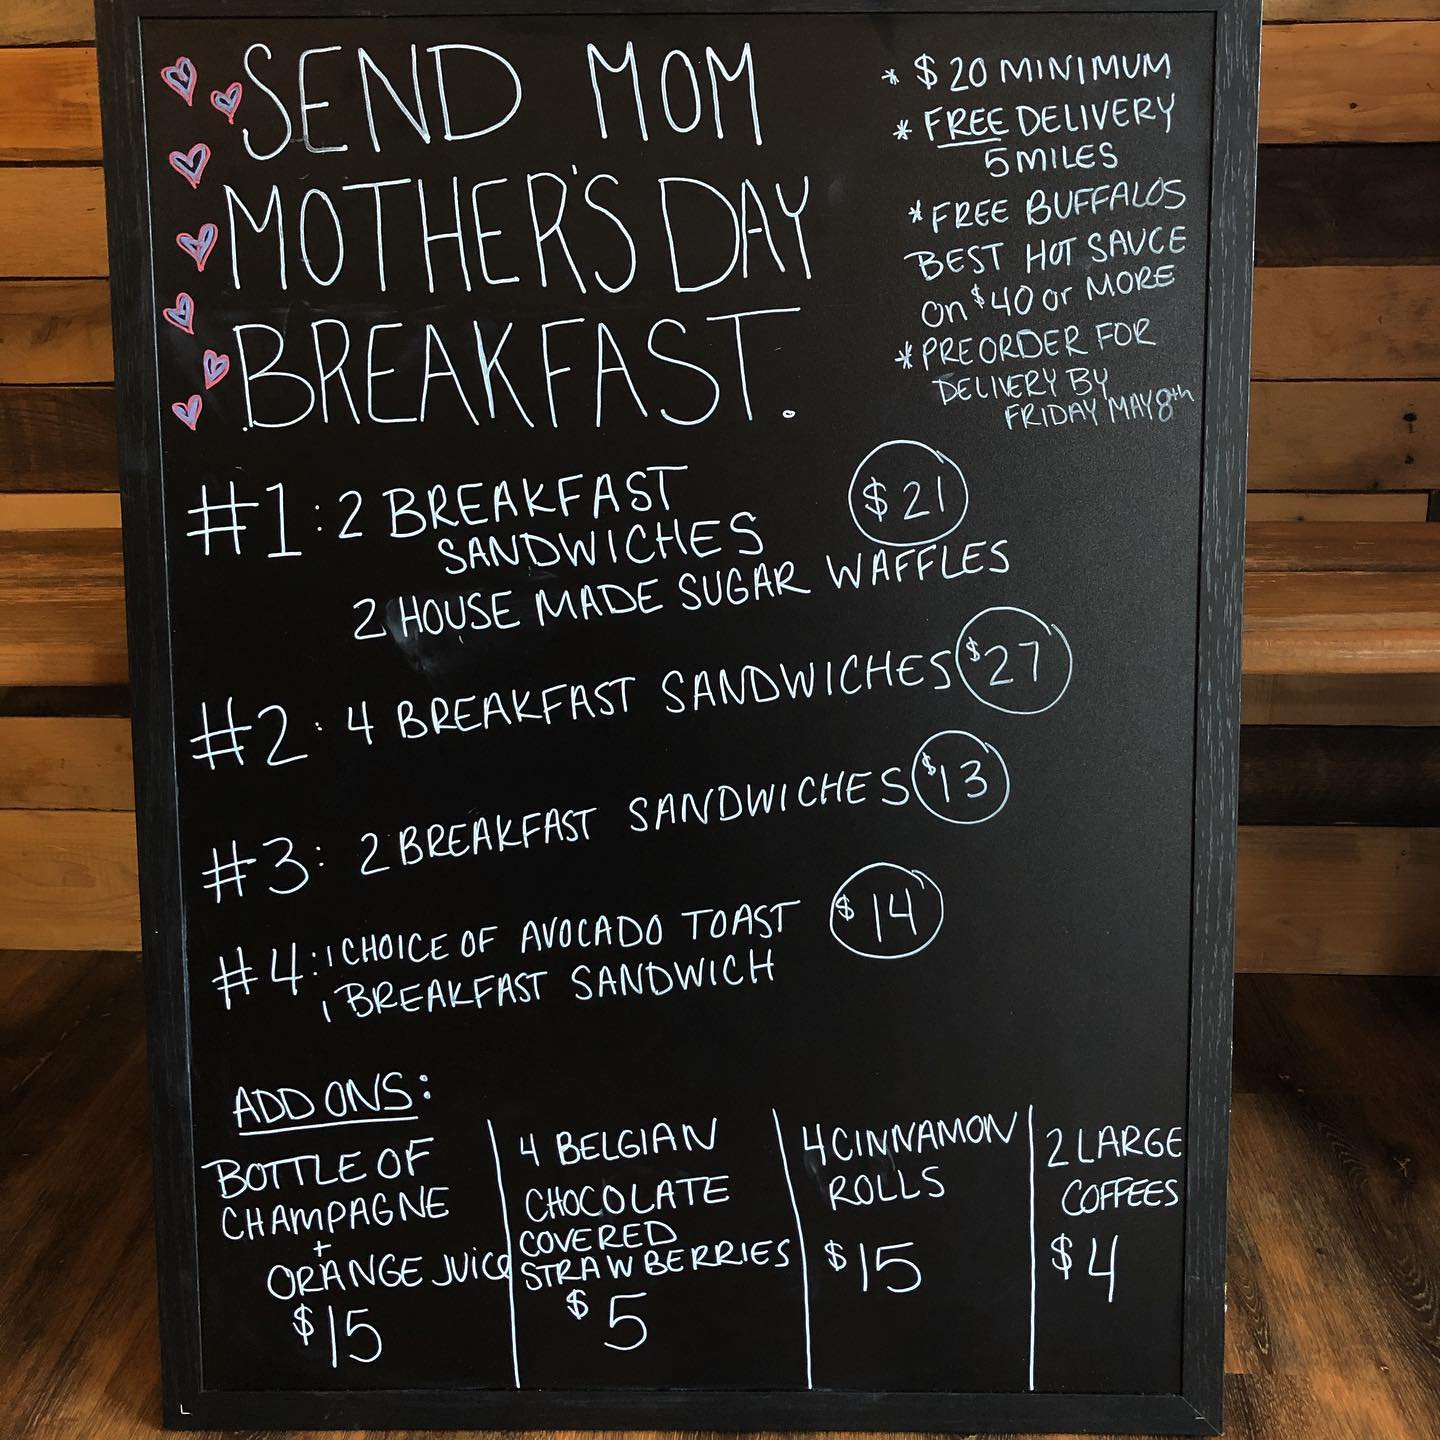 SEND MOM
MOTHER'S DAY
BREAKFAST.
* $20 MINIMUM
* FREE DELIVERY
5 MILES
* FREE BUFFALOS
BEST HOT SAUCE
on $40 or MORE
* PREORDER FOR
DELIVERY BY
FRIDAY MAY 8th
#1: 2 BREAKFAST
SANDWICHES
$21
2 HOUSE MADE SUGAR WAFFLES
#2: 4 BREAKFAST SANDWICHES $27
#3: 2 BREAKFAST SANDWICHES $13
#4: 1 CHOICE OF AVOCADO TOAST $14
1 BREAKFAST SANDWICH
ADD ONS:
BOTTLE OF
CHAMPAGNE
+
ORANGE JUICE
$15
4 BELGIAN
CHOCOLATE
COVERED
STRAWBERRIES
$5
4 CINNAMON
ROLLS
$15
2 LARGE
COFFEES
$4